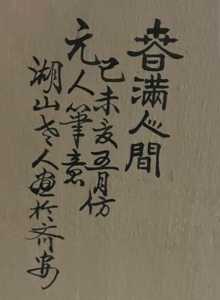 春滿人間
己未亥五月仿
元人筆意
湖山老人画於齐安